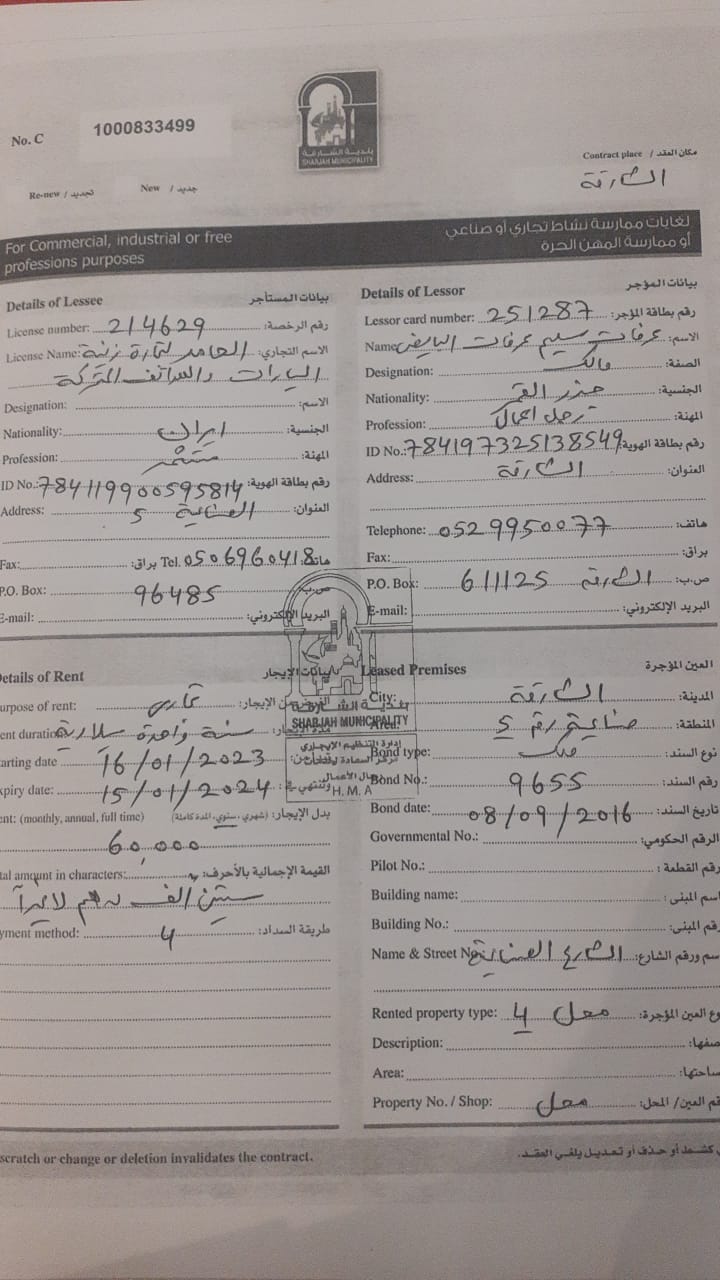 No. C 1000833499
بلدية الشارقة
SHARJAH MUNICIPALITY
Contract place / مكان العقد
الشارقة
Re-new / تجديد New / جديد
For Commercial, industrial or free professions purposes
لغايات ممارسة نشاط تجاري أو صناعي أو ممارسة المهن الحرة
Details of Lessee بيانات المستأجر
License number: 214629 رقم الرخصة:
License Name: الاسم التجاري:
Designation: الاسم:
Nationality: ايران الجنسية:
Profession: مستثمر المهنة:
ID No.: 784119900595814 رقم بطاقة الهوية:
Address: الصناعية 5 العنوان:
Fax: براق: Tel. 0506960418 هاتف
P.O. Box: 96485 ص.ب:
E-mail: البريد الإلكتروني:
Details of Lessor بيانات المؤجر
Lessor card number: 251287 رقم بطاقة المؤجر:
Name: عرفات سليم عرفات الاسم:
Designation: مالك الصفة:
Nationality: جزر القمر الجنسية:
Profession: رجل اعمال المهنة:
ID No.: 784197325138549 رقم بطاقة الهوية:
Address: الشارقة العنوان:
Telephone: 0529950077 هاتف:
Fax: براق:
P.O. Box: 611125 الشارقة ص.ب:
E-mail: البريد الإلكتروني:
بلدية الشارقة
SHARJAH MUNICIPALITY
إدارة التنظيم الإيجاري
H.M.A
etails of Rent بيانات الإيجار
urpose of rent: تجاري من الإيجار:
ent duration سنة واحدة
arting date 16/01/2023
xpiry date: 15/01/2024 وتنتهي في:
ent: (monthly, annual, full time) بدل الإيجار: (شهري، سنوي، المدة كاملة)
60,000
tal amount in characters: القيمة الإجمالية بالأحرف:
ستين الف درهم لا غير
yment method: 4 طريقة السداد:
Leased Premises العين المؤجرة
City: الشارقة المدينة:
Area: صناعية رقم 5 المنطقة:
Bond type: ملك نوع السند:
Bond No.: 9655 رقم السند:
Bond date: 08/09/2016 تاريخ السند:
Governmental No.: الرقم الحكومي:
Pilot No.: رقم القطعة:
Building name: اسم المبنى:
Building No.: رقم المبنى:
Name & Street No الشارع الصناعية سم ورقم الشارع:
Rented property type: محل 4 وع العين المؤجرة:
Description: صفها:
Area: ساحتها:
Property No. / Shop: محل قم العين/ المحل:
scratch or change or deletion invalidates the contract.
كشط أو حذف أو تعديل يلغي العقد.